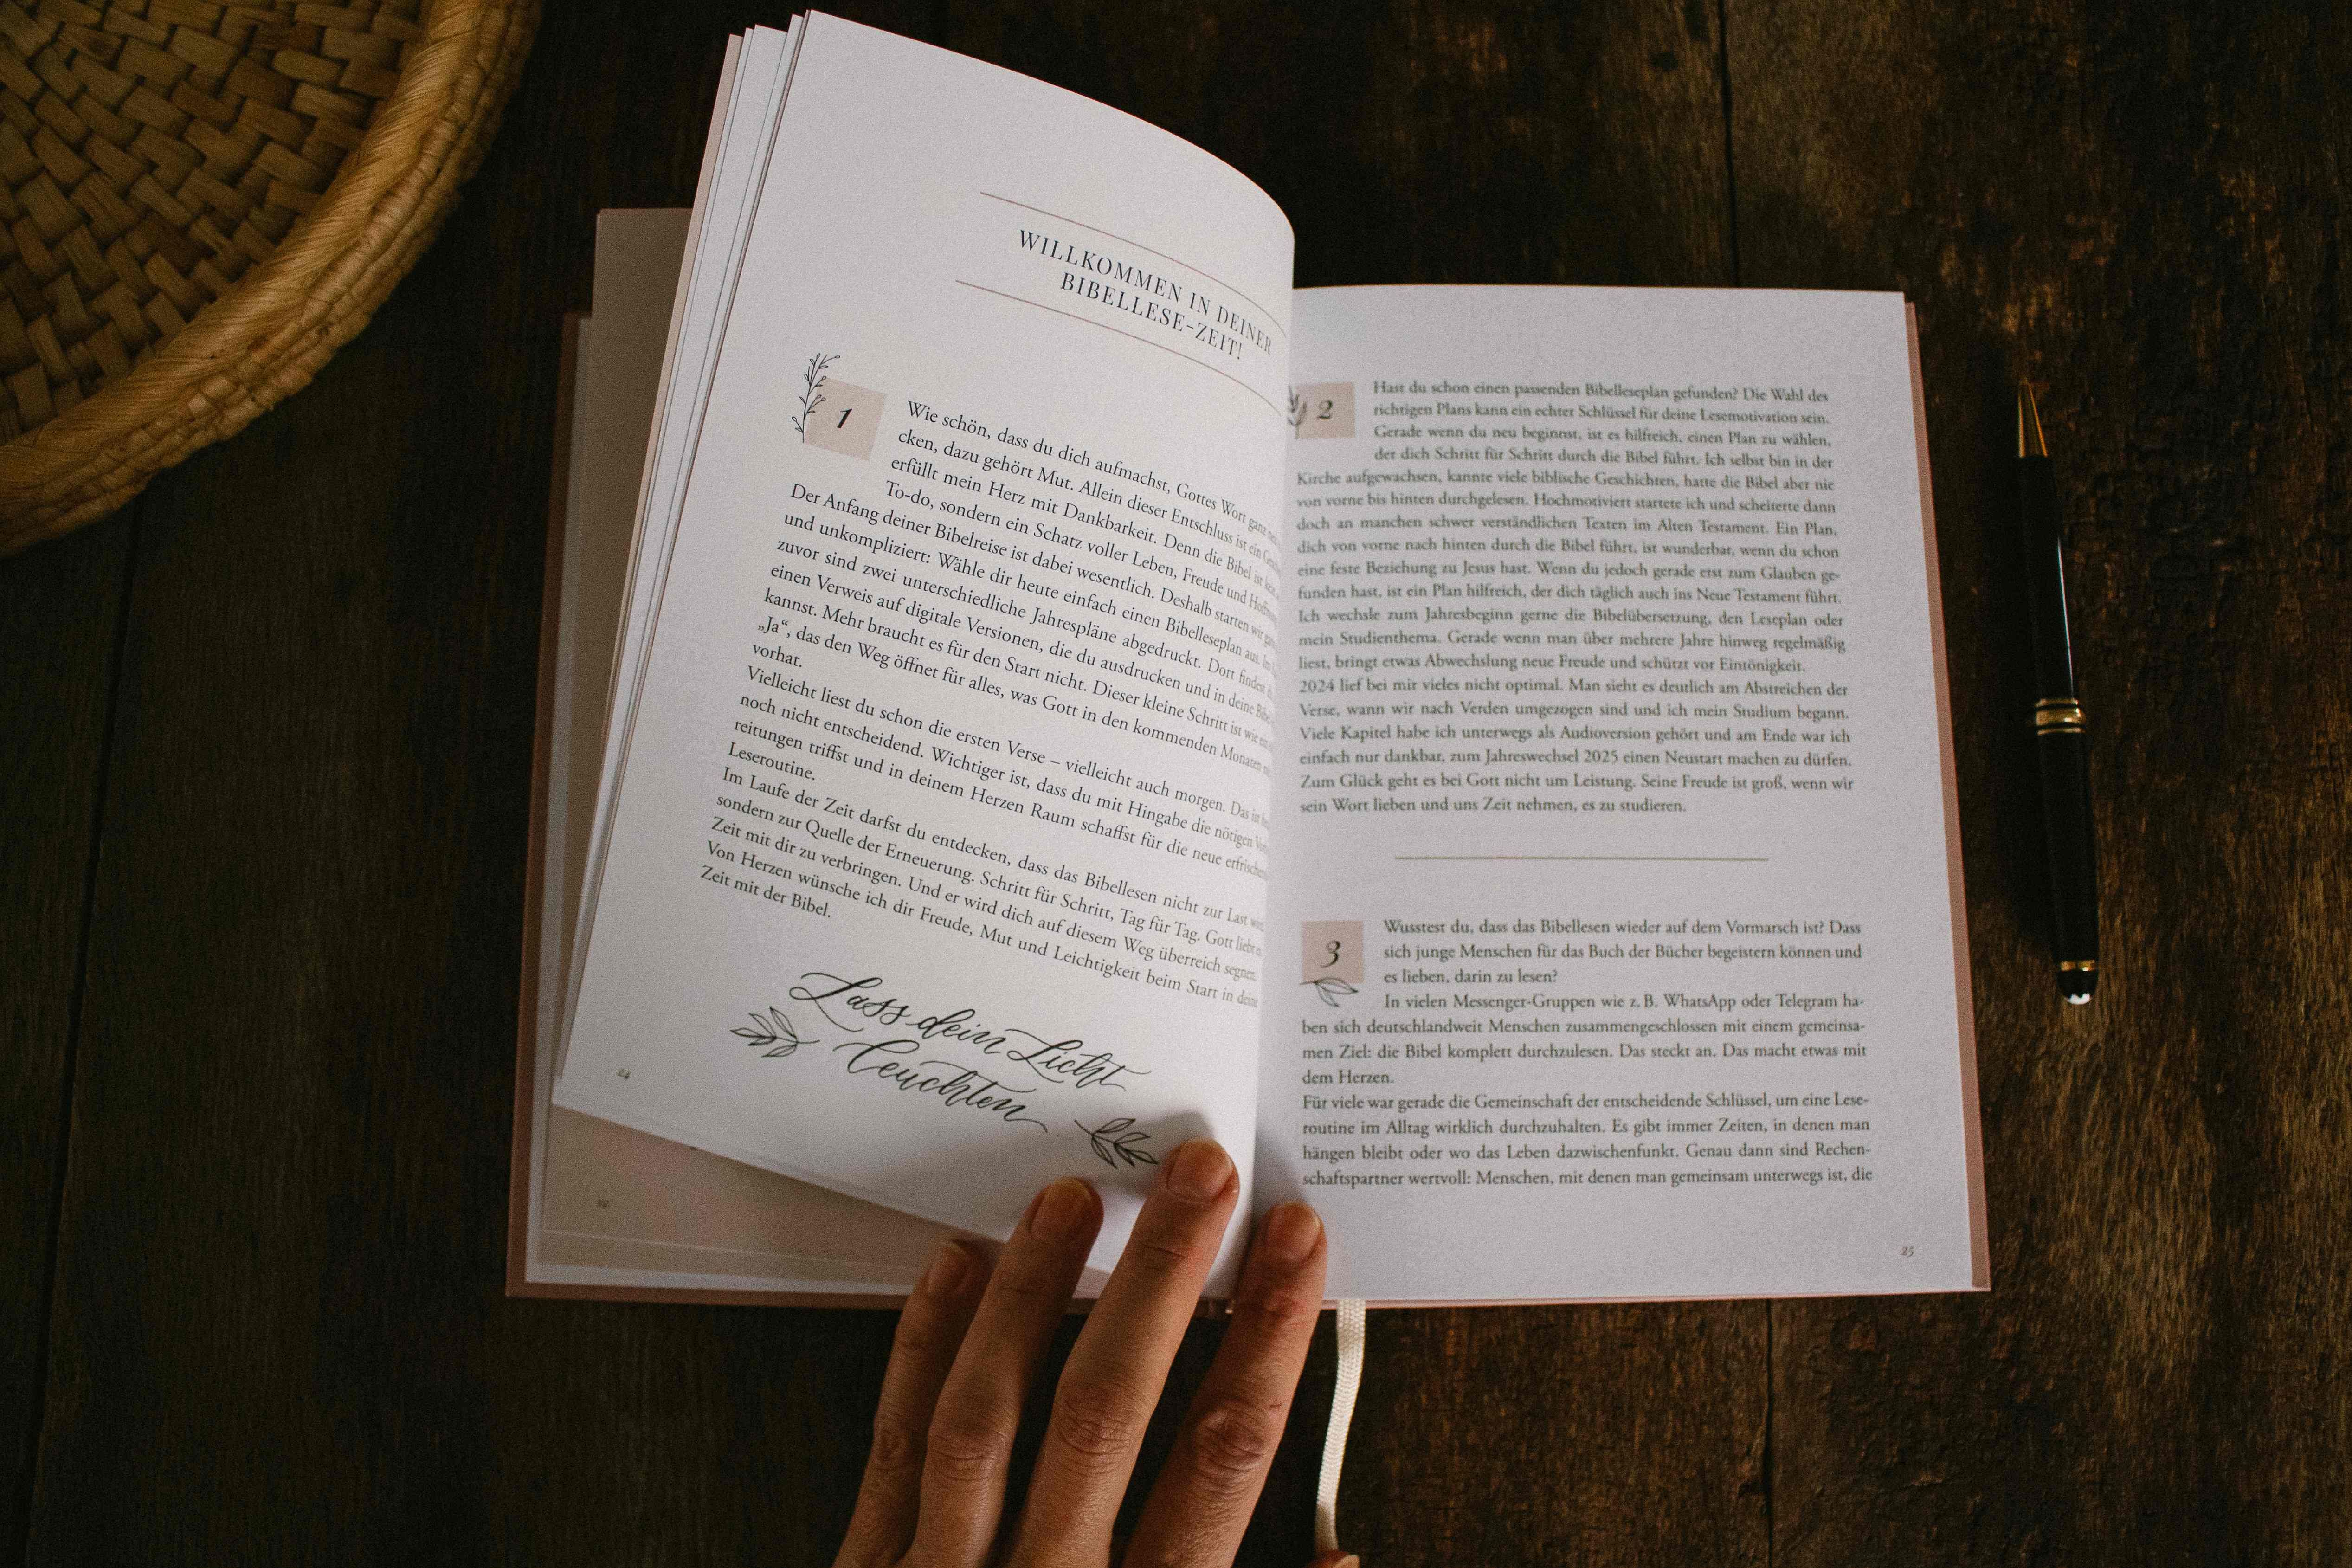 WILLKOMMEN IN DEINER
BIBELLESE-ZEIT!
1
Wie schön, dass du dich aufmachst, Gottes Wort ganz
cken, dazu gehört Mut. Allein dieser Entschluss ist ein
erfüllt mein Herz mit Dankbarkeit. Denn die Bibel ist
To-do, sondern ein Schatz voller Leben, Freude und
Der Anfang deiner Bibelreise ist dabei wesentlich. Deshalb starten wir
und unkompliziert: Wähle dir heute einfach einen Bibelleseplan aus.
zuvor sind zwei unterschiedliche Jahrespläne abgedruckt. Dort
einen Verweis auf digitale Versionen, die du ausdrucken und in deine
kannst. Mehr braucht es für den Start nicht. Dieser kleine Schritt ist wie
„Ja“, das den Weg öffnet für alles, was Gott in den kommenden Monaten
vorhat.
Vielleicht liest du schon die ersten Verse – vielleicht auch morgen. Das ist
noch nicht entscheidend. Wichtiger ist, dass du mit Hingabe die nötigen
reitungen triffst und in deinem Herzen Raum schaffst für die neue
Leseroutine.
Im Laufe der Zeit darfst du entdecken, dass das Bibellesen nicht zur Last
sondern zur Quelle der Erneuerung. Schritt für Schritt, Tag für Tag. Gott liebt
Zeit mit dir zu verbringen. Und er wird dich auf diesem Weg überreich segnen.
Von Herzen wünsche ich dir Freude, Mut und Leichtigkeit beim Start in deine
Zeit mit der Bibel.
Lass dein Licht
leuchten
24
2
Hast du schon einen passenden Bibelleseplan gefunden? Die Wahl des
richtigen Plans kann ein echter Schlüssel für deine Lesemotivation sein.
Gerade wenn du neu beginnst, ist es hilfreich, einen Plan zu wählen,
der dich Schritt für Schritt durch die Bibel führt. Ich selbst bin in der
Kirche aufgewachsen, kannte viele biblische Geschichten, hatte die Bibel aber nie
von vorne bis hinten durchgelesen. Hochmotiviert startete ich und scheiterte dann
doch an manchen schwer verständlichen Texten im Alten Testament. Ein Plan,
dich von vorne nach hinten durch die Bibel führt, ist wunderbar, wenn du schon
eine feste Beziehung zu Jesus hast. Wenn du jedoch gerade erst zum Glauben ge-
funden hast, ist ein Plan hilfreich, der dich täglich auch ins Neue Testament führt.
Ich wechsle zum Jahresbeginn gerne die Bibelübersetzung, den Leseplan oder
mein Studienthema. Gerade wenn man über mehrere Jahre hinweg regelmäßig
liest, bringt etwas Abwechslung neue Freude und schützt vor Eintönigkeit.
2024 lief bei mir vieles nicht optimal. Man sieht es deutlich am Abstreichen der
Verse, wann wir nach Verden umgezogen sind und ich mein Studium begann.
Viele Kapitel habe ich unterwegs als Audioversion gehört und am Ende war ich
einfach nur dankbar, zum Jahreswechsel 2025 einen Neustart machen zu dürfen.
Zum Glück geht es bei Gott nicht um Leistung. Seine Freude ist groß, wenn wir
sein Wort lieben und uns Zeit nehmen, es zu studieren.
3
Wusstest du, dass das Bibellesen wieder auf dem Vormarsch ist? Dass
sich junge Menschen für das Buch der Bücher begeistern können und
es lieben, darin zu lesen?
In vielen Messenger-Gruppen wie z. B. WhatsApp oder Telegram ha-
ben sich deutschlandweit Menschen zusammengeschlossen mit einem gemeinsa-
men Ziel: die Bibel komplett durchzulesen. Das steckt an. Das macht etwas mit
dem Herzen.
Für viele war gerade die Gemeinschaft der entscheidende Schlüssel, um eine Lese-
routine im Alltag wirklich durchzuhalten. Es gibt immer Zeiten, in denen man
hängen bleibt oder wo das Leben dazwischenfunkt. Genau dann sind Rechen-
schaftspartner wertvoll: Menschen, mit denen man gemeinsam unterwegs ist, die
25